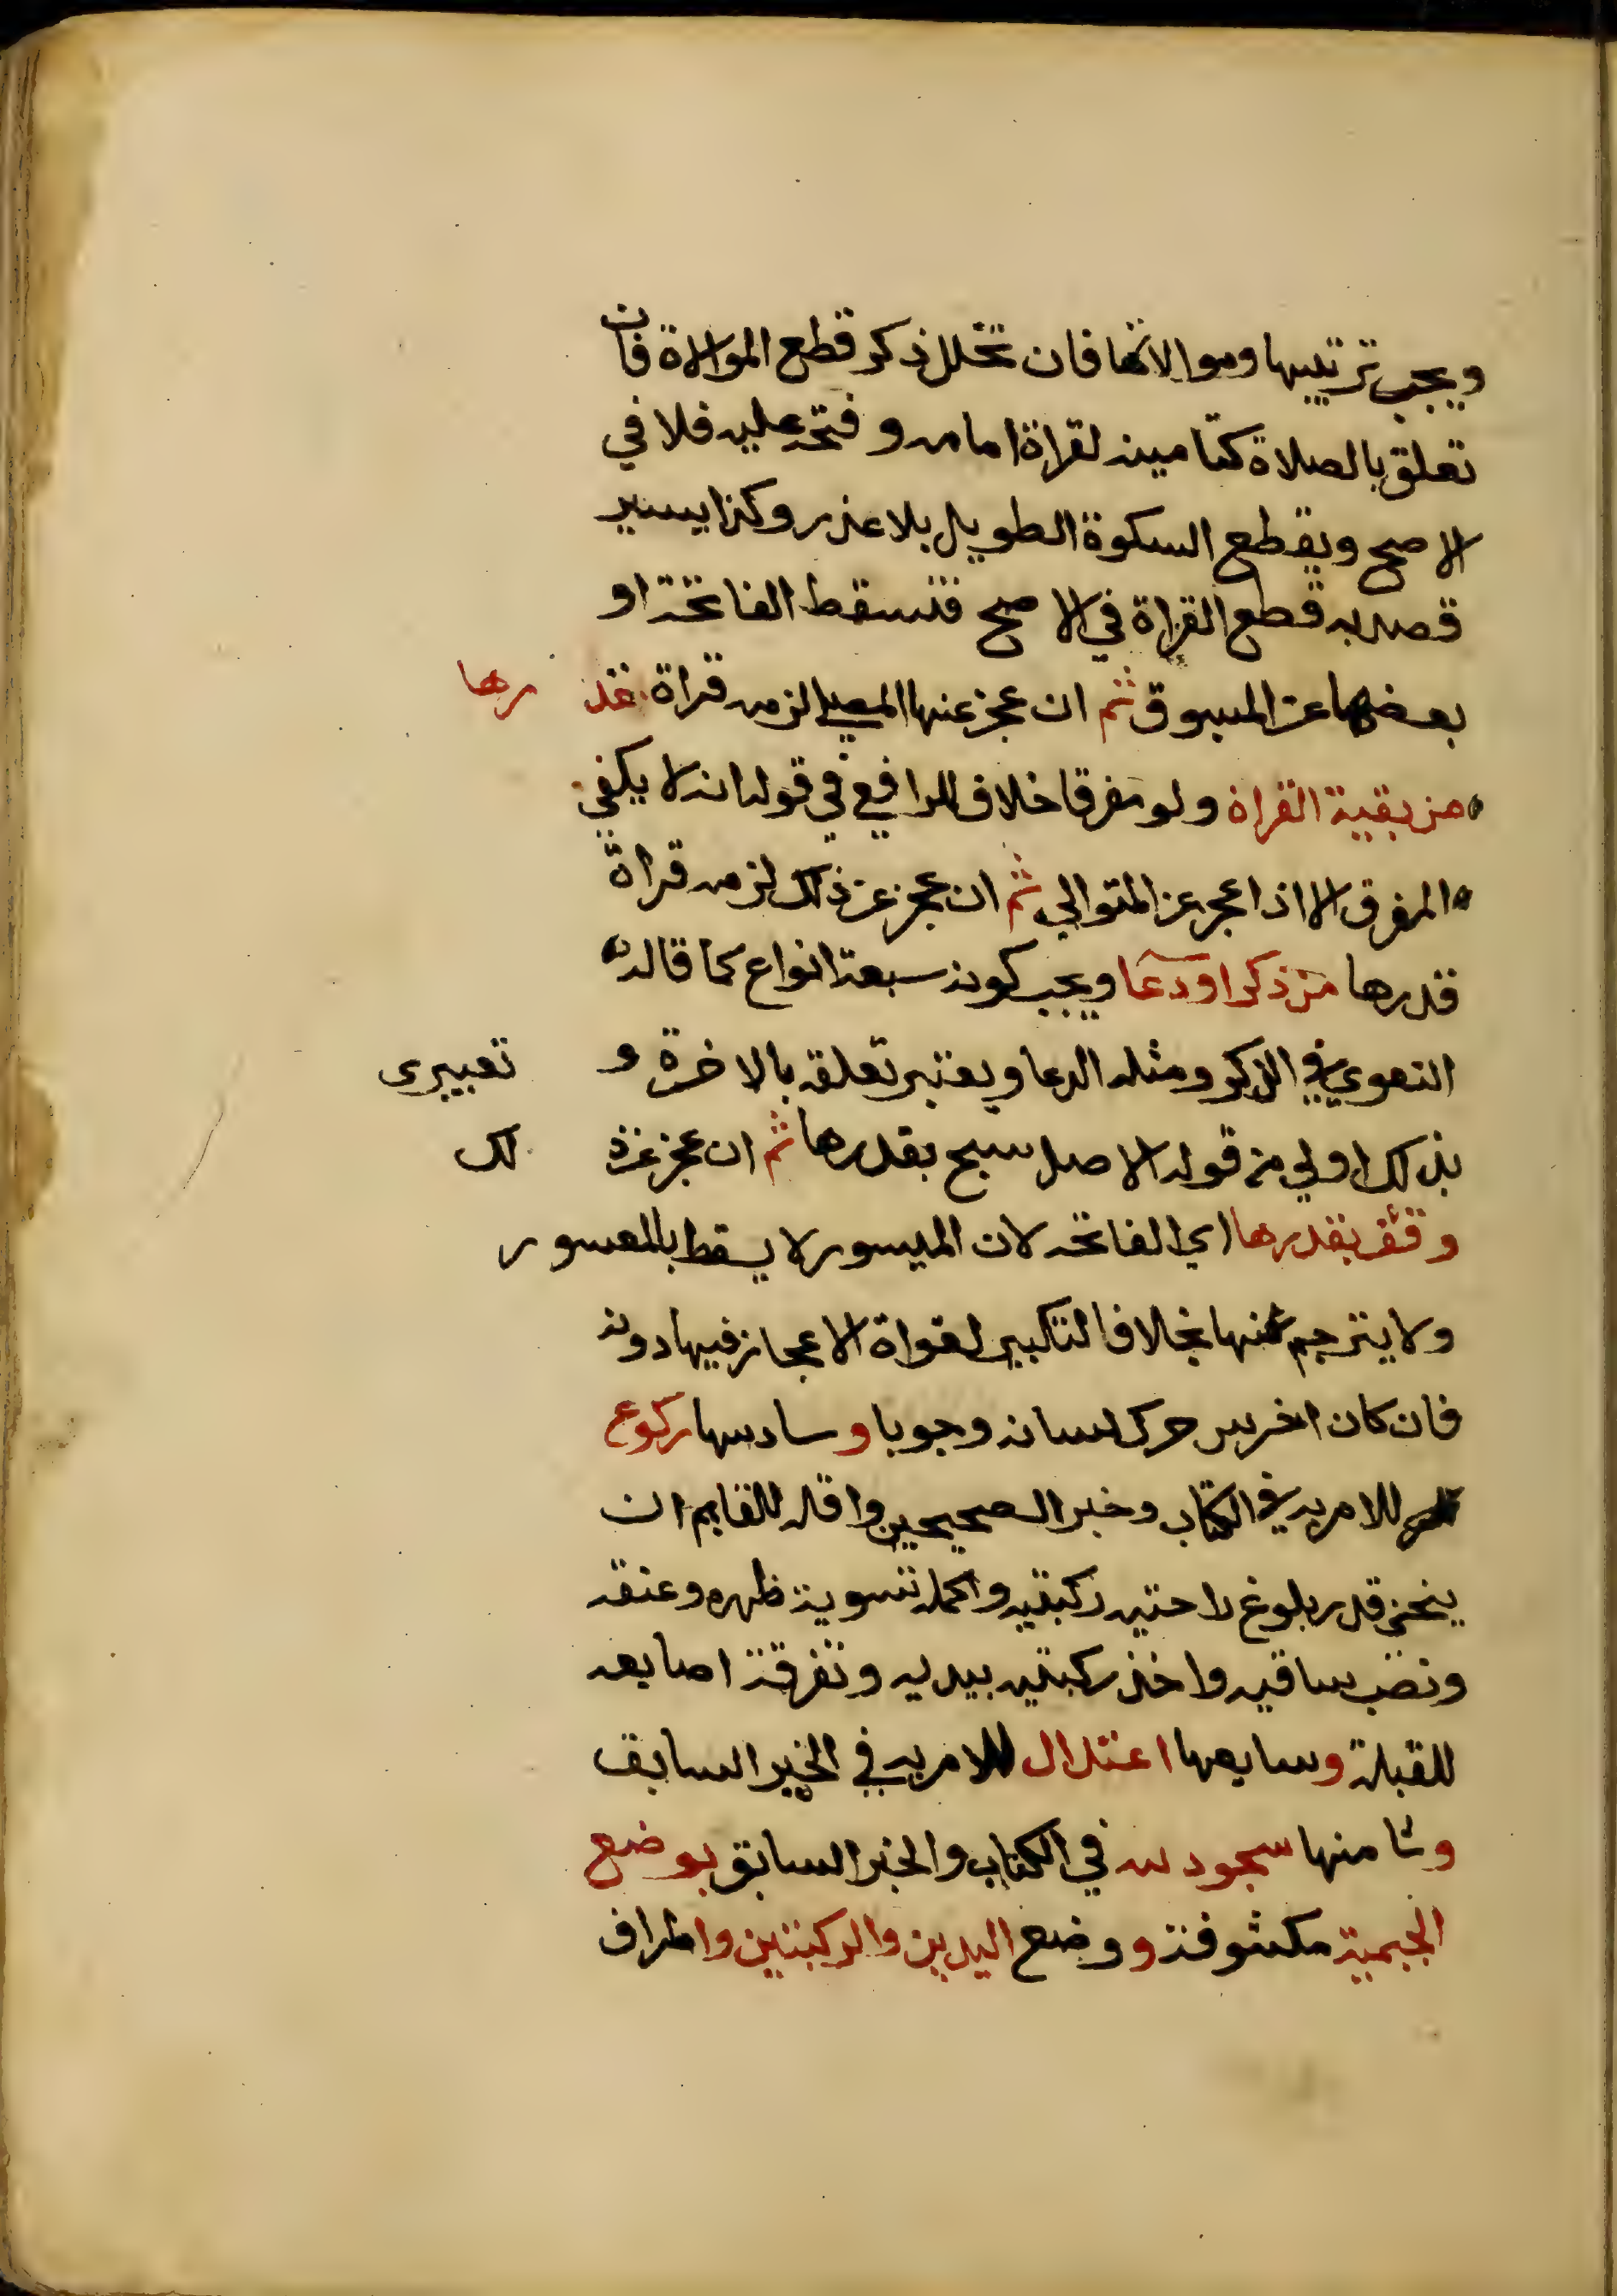 ويجب ترتيبها وموالاتها فان تخلل ذكر قطع الموالاة فان
تعلق بالصلاة كتامينه لقراة امامه و فتحه عليه فلا في
الاصح ويقطع السكوة الطويل بلا عذر وكذا يسير
قصد به قطع القراة في الاصح فتسقط الفاتحة او
بعضها عن المسبوق ثم ان عجز عنها المصلي لزمه قراة قدرها
من بقية القراة ولو مفرقا خلاف للرافعي في قوله انه لا يكفي
المفرق الا اذا عجز عن المتوالي ثم ان عجز عن ذلك لزمه قراة
قدرها من ذكر او دعا ويجب كونه سبعة انواع كما قاله
البغوي في الذكر ومثله الدعا ويعتبر تعلقه بالاخرة و تعبيرى
بذلك اولي من قوله الاصل سبح بقدرها ثم ان عجز عن ذلك
وقف بقدرها اي الفاتحه لان الميسور لا يسقط بالمعسور
ولا يترجم عنها بخلاف التكبير لفواة الاعجاز فيها دونه
فان كان اخرس حرك لسانه وجوبا وسادسها ركوع
للامر به في الكتاب وخبر الصحيحين واقله للقايم ان
ينحني قدر بلوغ راحتيه ركبتيه واكمله تسوية ظهره وعنقه
ونصب ساقيه واخذ ركبتيه بيديه وتفرقة اصابعه
للقبلة وسابعها اعتدال للامر به في الخبر السابق
وثامنها سجود له في الكتاب والخبر السابق بوضع
الجبهة مكشوفة و وضع اليدين والركبتين واطراف